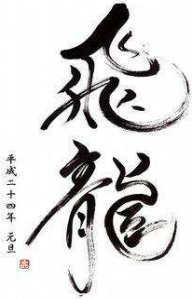 飛龍
平成二十四年 元旦